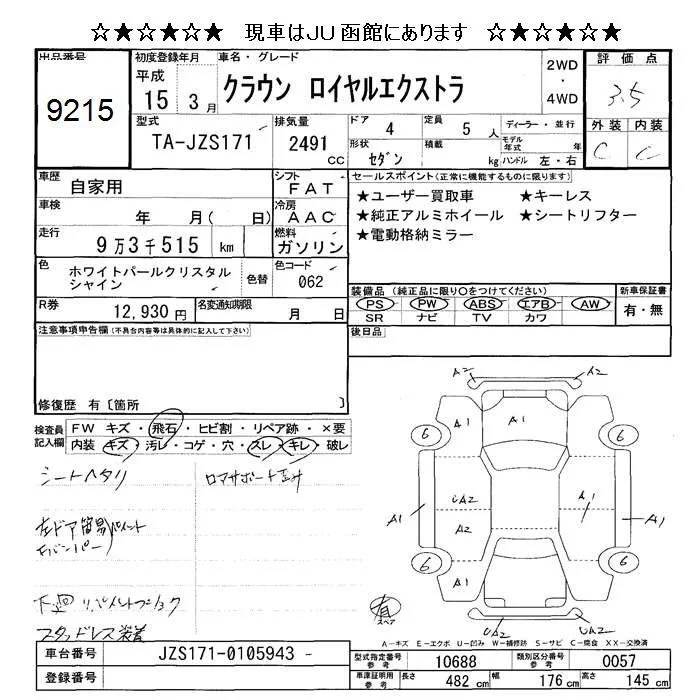 ☆★☆★☆★ 現車はJU函館にあります ☆★☆★☆★
出品番号
9215
初度登録年月
平成
15年3月
車名・グレード
クラウン ロイヤルエクストラ
2WD
・
4WD
評価点
3.5
外装 内装
C C
型式
TA-JZS171
排気量
2491
CC
ドア 4
定員 5 人
ディーラー・並行
形状 セダン
積載 kg
モデル年式 年
ハンドル 左・右
車歴
自家用
シフト
FAT
車検
年 月( 日)
冷房
AAC
走行
9万3千515 km
燃料
ガソリン
色
ホワイトパールクリスタル
シャイン
色替
色コード
062
R券 12,930円
名変通知期限 月 日
セールスポイント(正常に機能するものに限ります)
★ユーザー買取車 ★キーレス
★純正アルミホイール ★シートリフター
★電動格納ミラー
装備品(純正品に限り○をつけてください)
PS PW ABS エアB AW
SR ナビ TV カワ
新車保証書
有・無
後日品
注意事項申告欄(不具合内容等は具体的に記入して下さい)
修復歴 有〔箇所 〕
検査員
記入欄
FW キズ・飛石・ヒビ割・リペア跡・×要
内装 キズ・汚レ・コゲ・穴・スレ・キレ・破レ
シートヘタリ
左ドア簡易ペイント
下廻
スタッドレス装着
A2 A2
A1 A1
6 6
UA2 A1
A1 A2 A1
6 6
A1
UA2 UA2
有
スペア
A-キズ E-エクボ U-凹み W-補修跡 S-サビ C-腐食 XX-交換済
車台番号 JZS171-0105943
登録番号
型式指定番号
参考
10688
類別区分番号
参考
0057
車庫証明用
参考
長さ 482 cm
幅 176 cm
高さ 145 cm